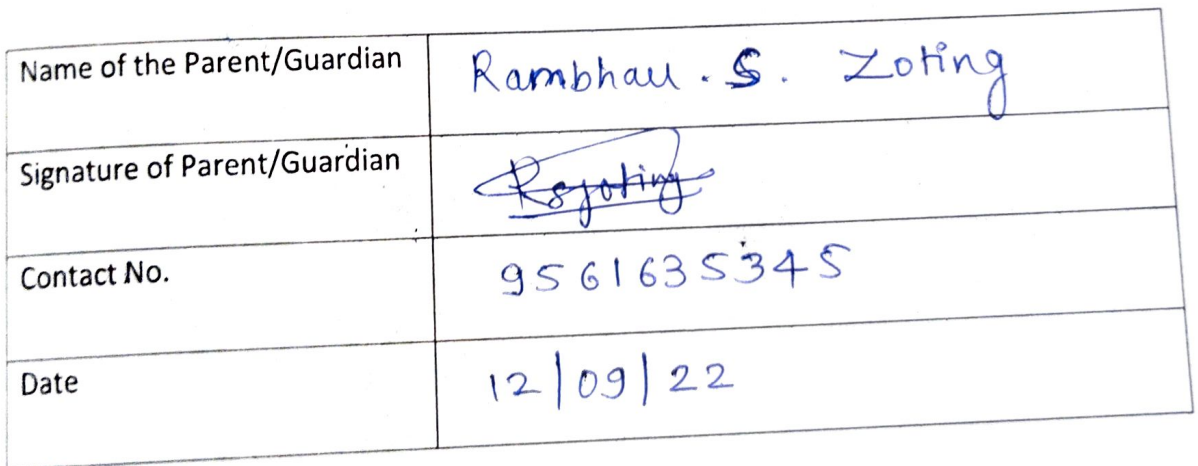 Name of the Parent/Guardian Rambhau . S. Zoting
Signature of Parent/Guardian Rszoting
Contact No. 9561635345
Date 12/09/22